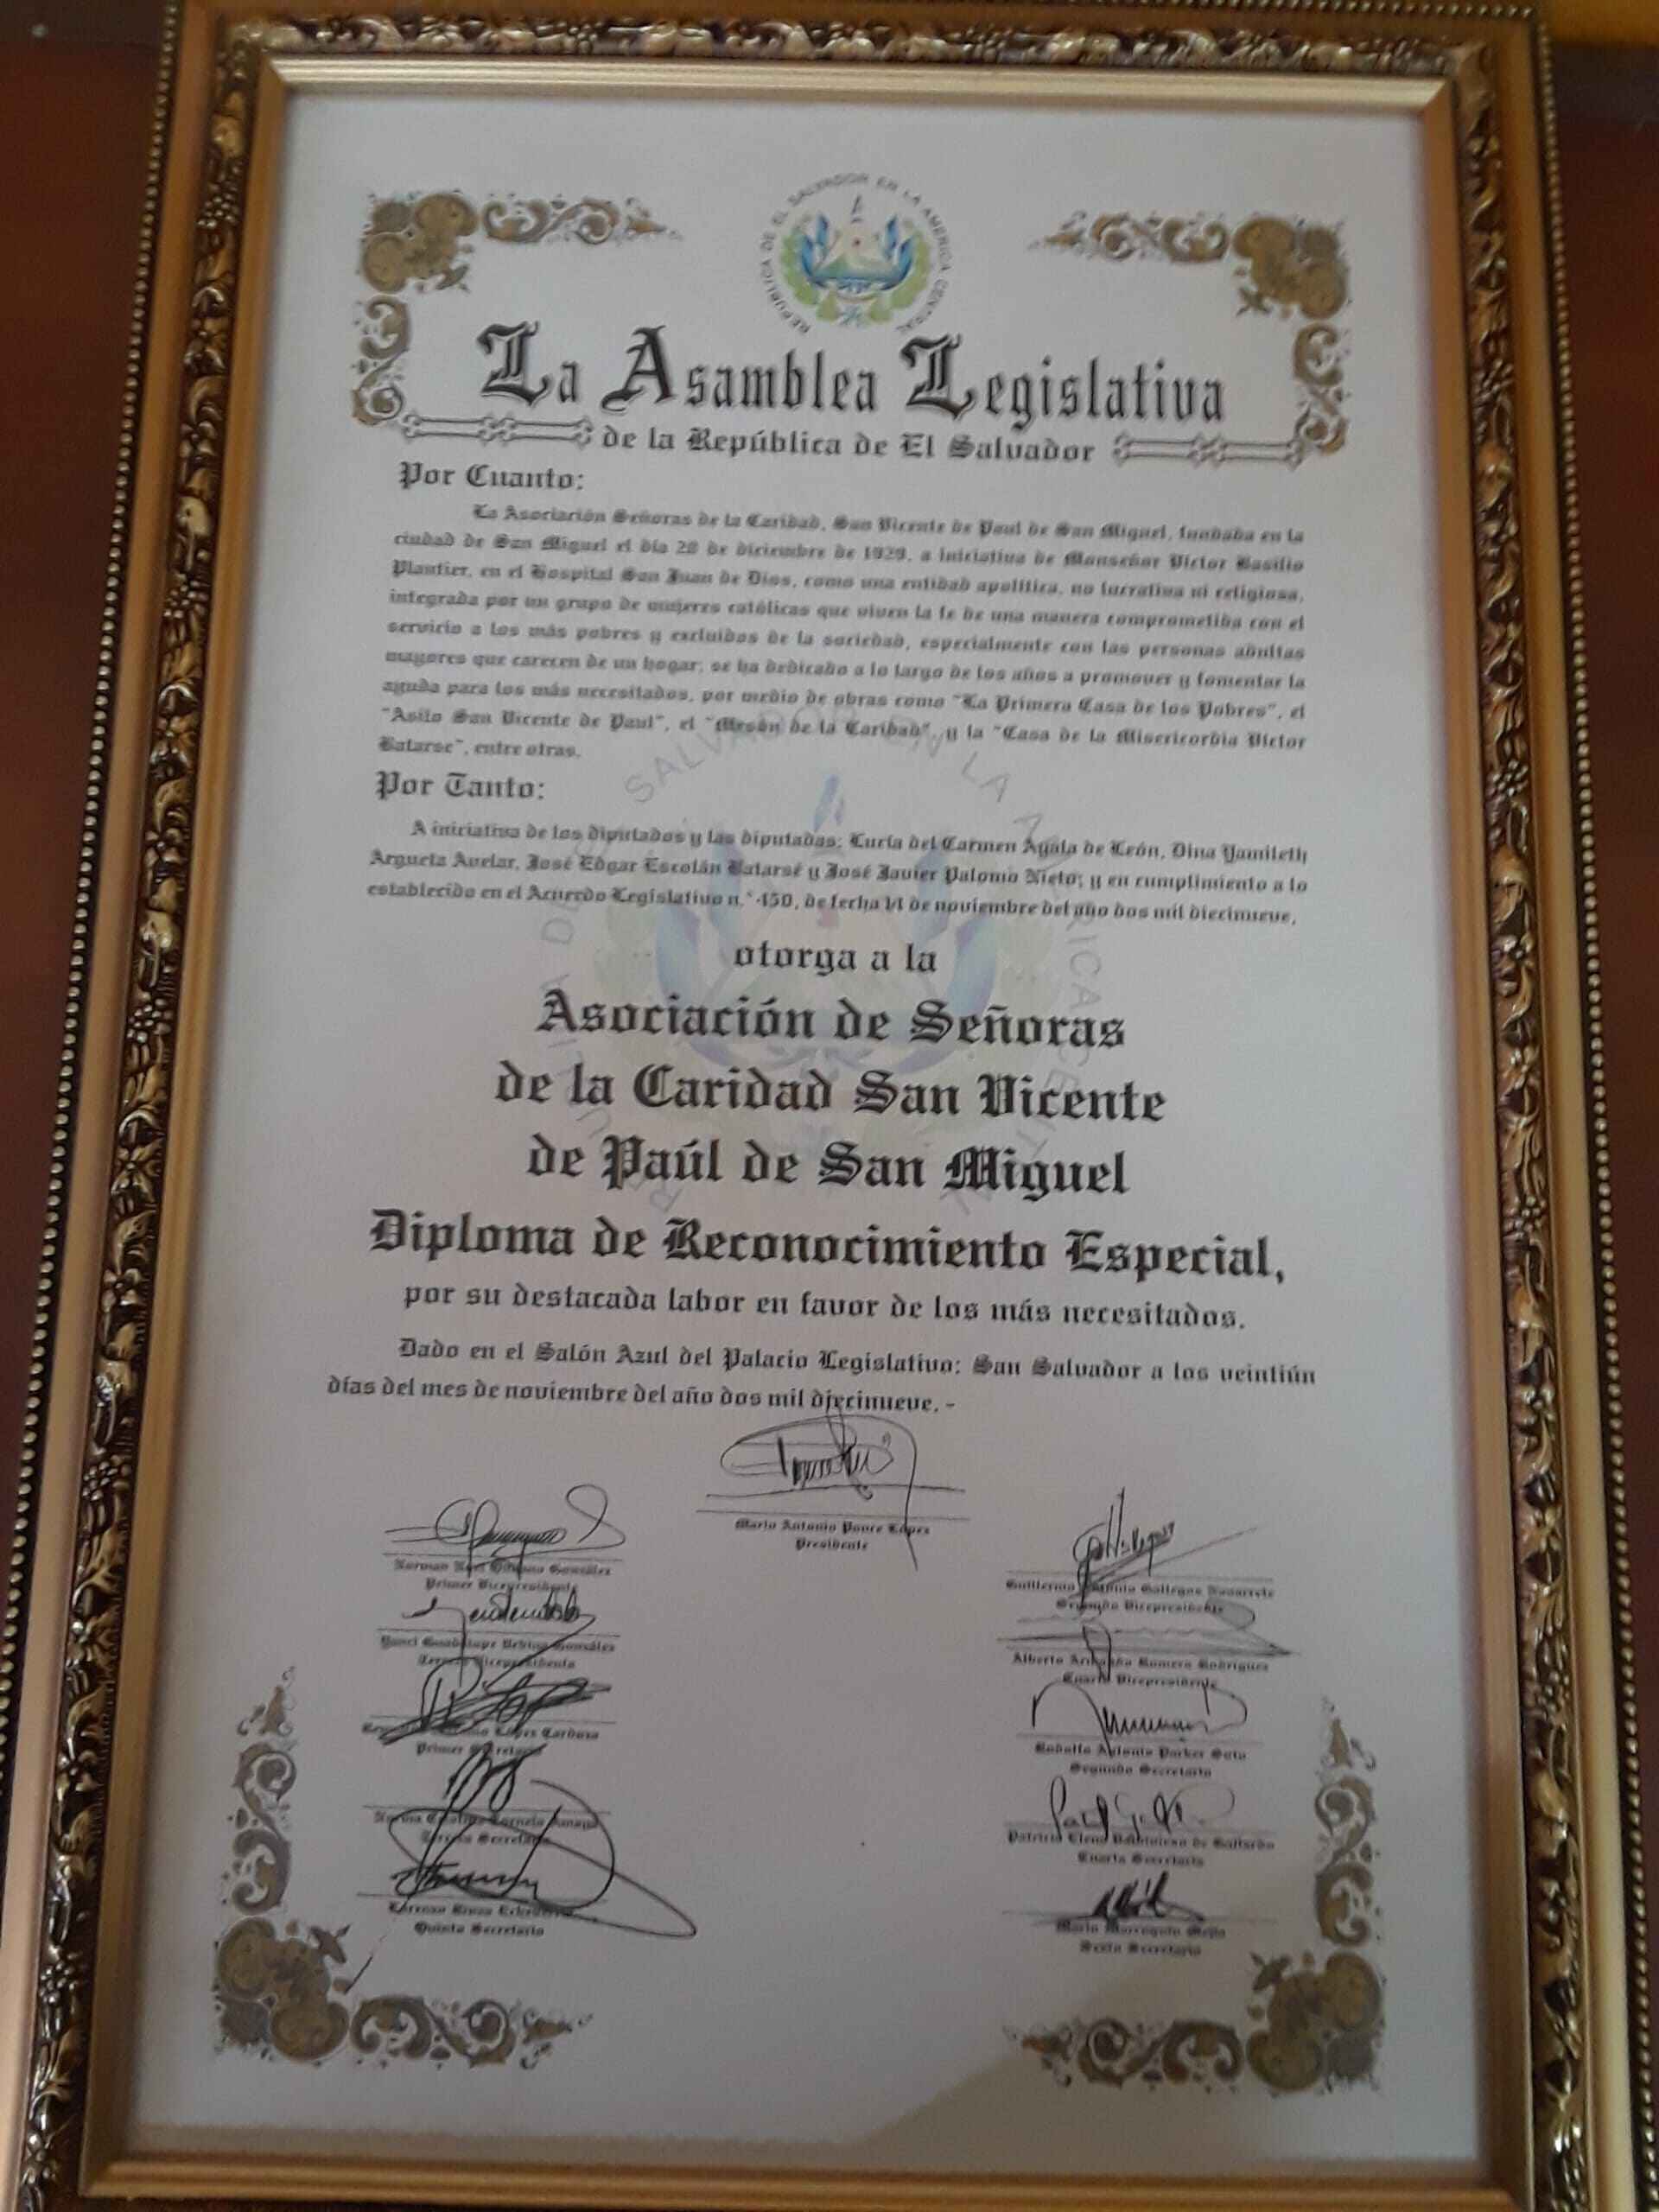 REPÚBLICA DE EL SALVADOR EN LA AMÉRICA CENTRAL
La Asamblea Legislativa
de la República de El Salvador
Por Cuanto:
La Asociación Señoras de la Caridad, San Vicente de Paul de San Miguel, fundada en la
ciudad de San Miguel el día 28 de diciembre de 1929, a iniciativa de Monseñor Víctor Basilio
Plantier, en el Hospital San Juan de Dios, como una entidad apolítica, no lucrativa ni religiosa,
integrada por un grupo de mujeres católicas que viven la fe de una manera comprometida con el
servicio a los más pobres y excluidos de la sociedad, especialmente con las personas adultas
mayores que carecen de un hogar; se ha dedicado a lo largo de los años a promover y fomentar la
ayuda para los más necesitados, por medio de obras como "La Primera Casa de los Pobres", el
"Asilo San Vicente de Paul", el "Mesón de la Caridad", y la "Casa de la Misericordia Víctor
Batarse", entre otras.
Por Tanto:
A iniciativa de los diputados y las diputadas: Lucía del Carmen Ayala de León, Dina Yamileth
Argueta Avelar, José Edgar Escolán Batarsé y José Javier Palomo Nieto; y en cumplimiento a lo
establecido en el Acuerdo Legislativo n.° 450, de fecha 14 de noviembre del año dos mil diecinueve,
otorga a la
Asociación de Señoras
de la Caridad San Vicente
de Paúl de San Miguel
Diploma de Reconocimiento Especial,
por su destacada labor en favor de los más necesitados.
Dado en el Salón Azul del Palacio Legislativo: San Salvador a los veintiún
días del mes de noviembre del año dos mil diecinueve. -
Mario Antonio Ponce López
Presidente
Norman Noel Quijano González
Primer Vicepresidente
Guillermo Antonio Gallegos Navarrete
Segundo Vicepresidente
Yanci Guadalupe Urbina González
Tercera Vicepresidenta
Alberto Armando Romero Rodríguez
Cuarto Vicepresidente
López Cardoza
Primer Secretario
Rodolfo Antonio Parker Soto
Segundo Secretario
Norma Cristina Cornejo Amaya
Tercera Secretaria
Patricia Elena Valdivieso de Gallardo
Cuarta Secretaria
Lorenzo Rivas Echeverría
Quinto Secretario
Mario Marroquín Mejía
Sexto Secretario